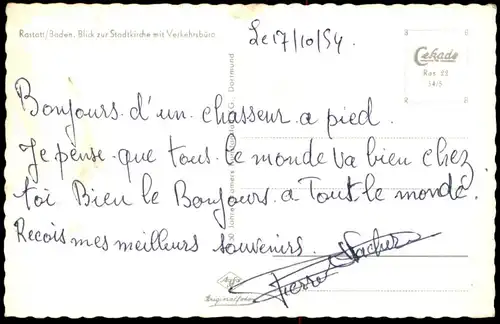 Rastatt/Baden. Blick zur Stadtkirche mit Verkehrsbüro
Le 17/10/54.
Cekade
Ras. 22
54/5
Bonjours d'un chasseur a pied.
Je pense que tous le monde va bien chez
toi Bien le Bonjours a Tout le monde.
Recois mes meilleurs souvenirs.
Pierre
Agfa
Originalfoto
Dortmund